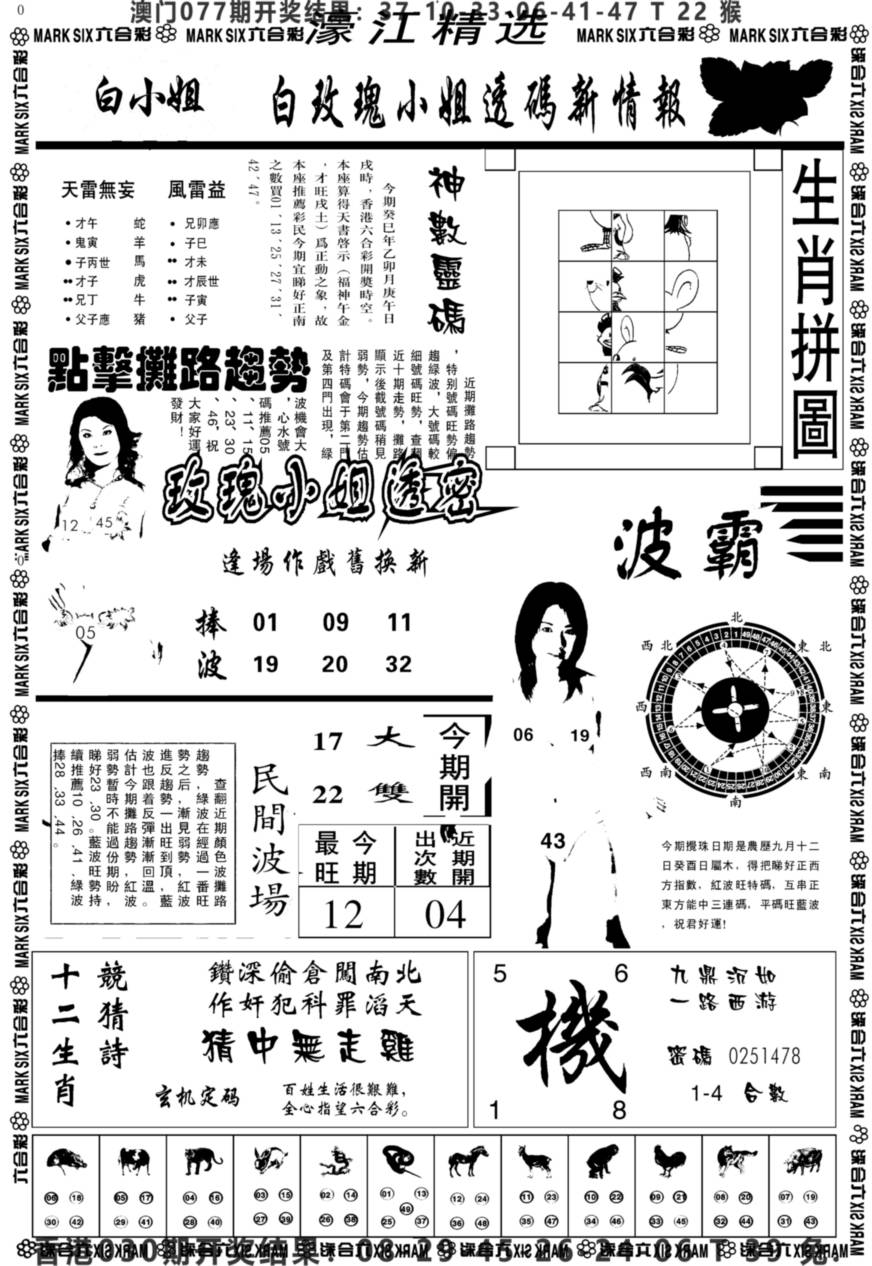 澳门077期开奖结果：37-10-33-06-41-47 T 22 猴
MARK SIX六合彩 MARK SIX六合彩 濠江精选 MARK SIX六合彩 MARK SIX六合彩
白小姐 白玫瑰小姐透碼新情報
天雷無妄 風雷益
才午 蛇 兄卯應
鬼寅 羊 子巳
子丙世 馬 才未
才子 虎 才辰世
兄丁 牛 子寅
父子應 豬 父子
神數靈碼
今期癸巳年乙卯月庚午日
戌時，香港六合彩開獎時空。
本座算得天書啓示（福神午金
，才旺戌土）爲正動之象，故
本座推薦彩民今期宜睇好正南
之數買01、13、25、27、31、
42、47。
生肖拼圖
點擊攤路趨勢
近期攤路趨勢
，特別號碼旺勢偏
趨綠波，大號碼較
細號碼旺勢，查翻
近十期走勢，攤路
顯示後截號碼稍見
弱勢，今期趨勢估
計特碼會于第二門
及第四門出現，綠
波機會大
，心水號
碼推薦05
、11、15
、23、30
、46，祝
大家好運
發財！
12 45
05
玫瑰小姐透密
逢場作戲舊換新
捧 01 09 11
波 19 20 32
波霸
06 19
43
北
西北 東北
西 東
西南 東南
南
今期攪珠日期是農歷九月十二
日癸酉日屬木，得把睇好正西
方指數，紅波旺特碼，互串正
東方能中三連碼，平碼旺藍波
，祝君好運！
查翻近期顏色攤路
趨勢，綠波在經過一番旺
勢之后，漸見弱勢，紅波
進反趨勢一出旺到頂，藍
波也跟着反彈漸漸回溫。
估計今期攤路趨勢紅波
弱勢暫時不能過份期盼，
睇好23、30。藍波旺勢持
續推薦10、26、41、綠波
捧28、33、44。
民間波場
17 大
22 雙
今期開
最旺 今期
12
出次數 近期開
04
十二生肖
競猜詩
鑽深偷倉闖南北
作奸犯科罪滔天
猜中無走雞
玄机定码
百姓生活很艱難，
全心指望六合彩。
5 6
機
1 8
九鼎沉如
一路西游
密碼 0251478
1-4 合數
06 18 05 17 04 16 03 15 02 14 01 13 12 24 11 23 10 22 09 21 08 20 07 19
49
30 42 29 41 28 40 27 39 26 38 25 37 36 48 35 47 34 46 33 45 32 44 31 43
香港030期开奖结果：08-29-45-26-24-06 T 39 兔.